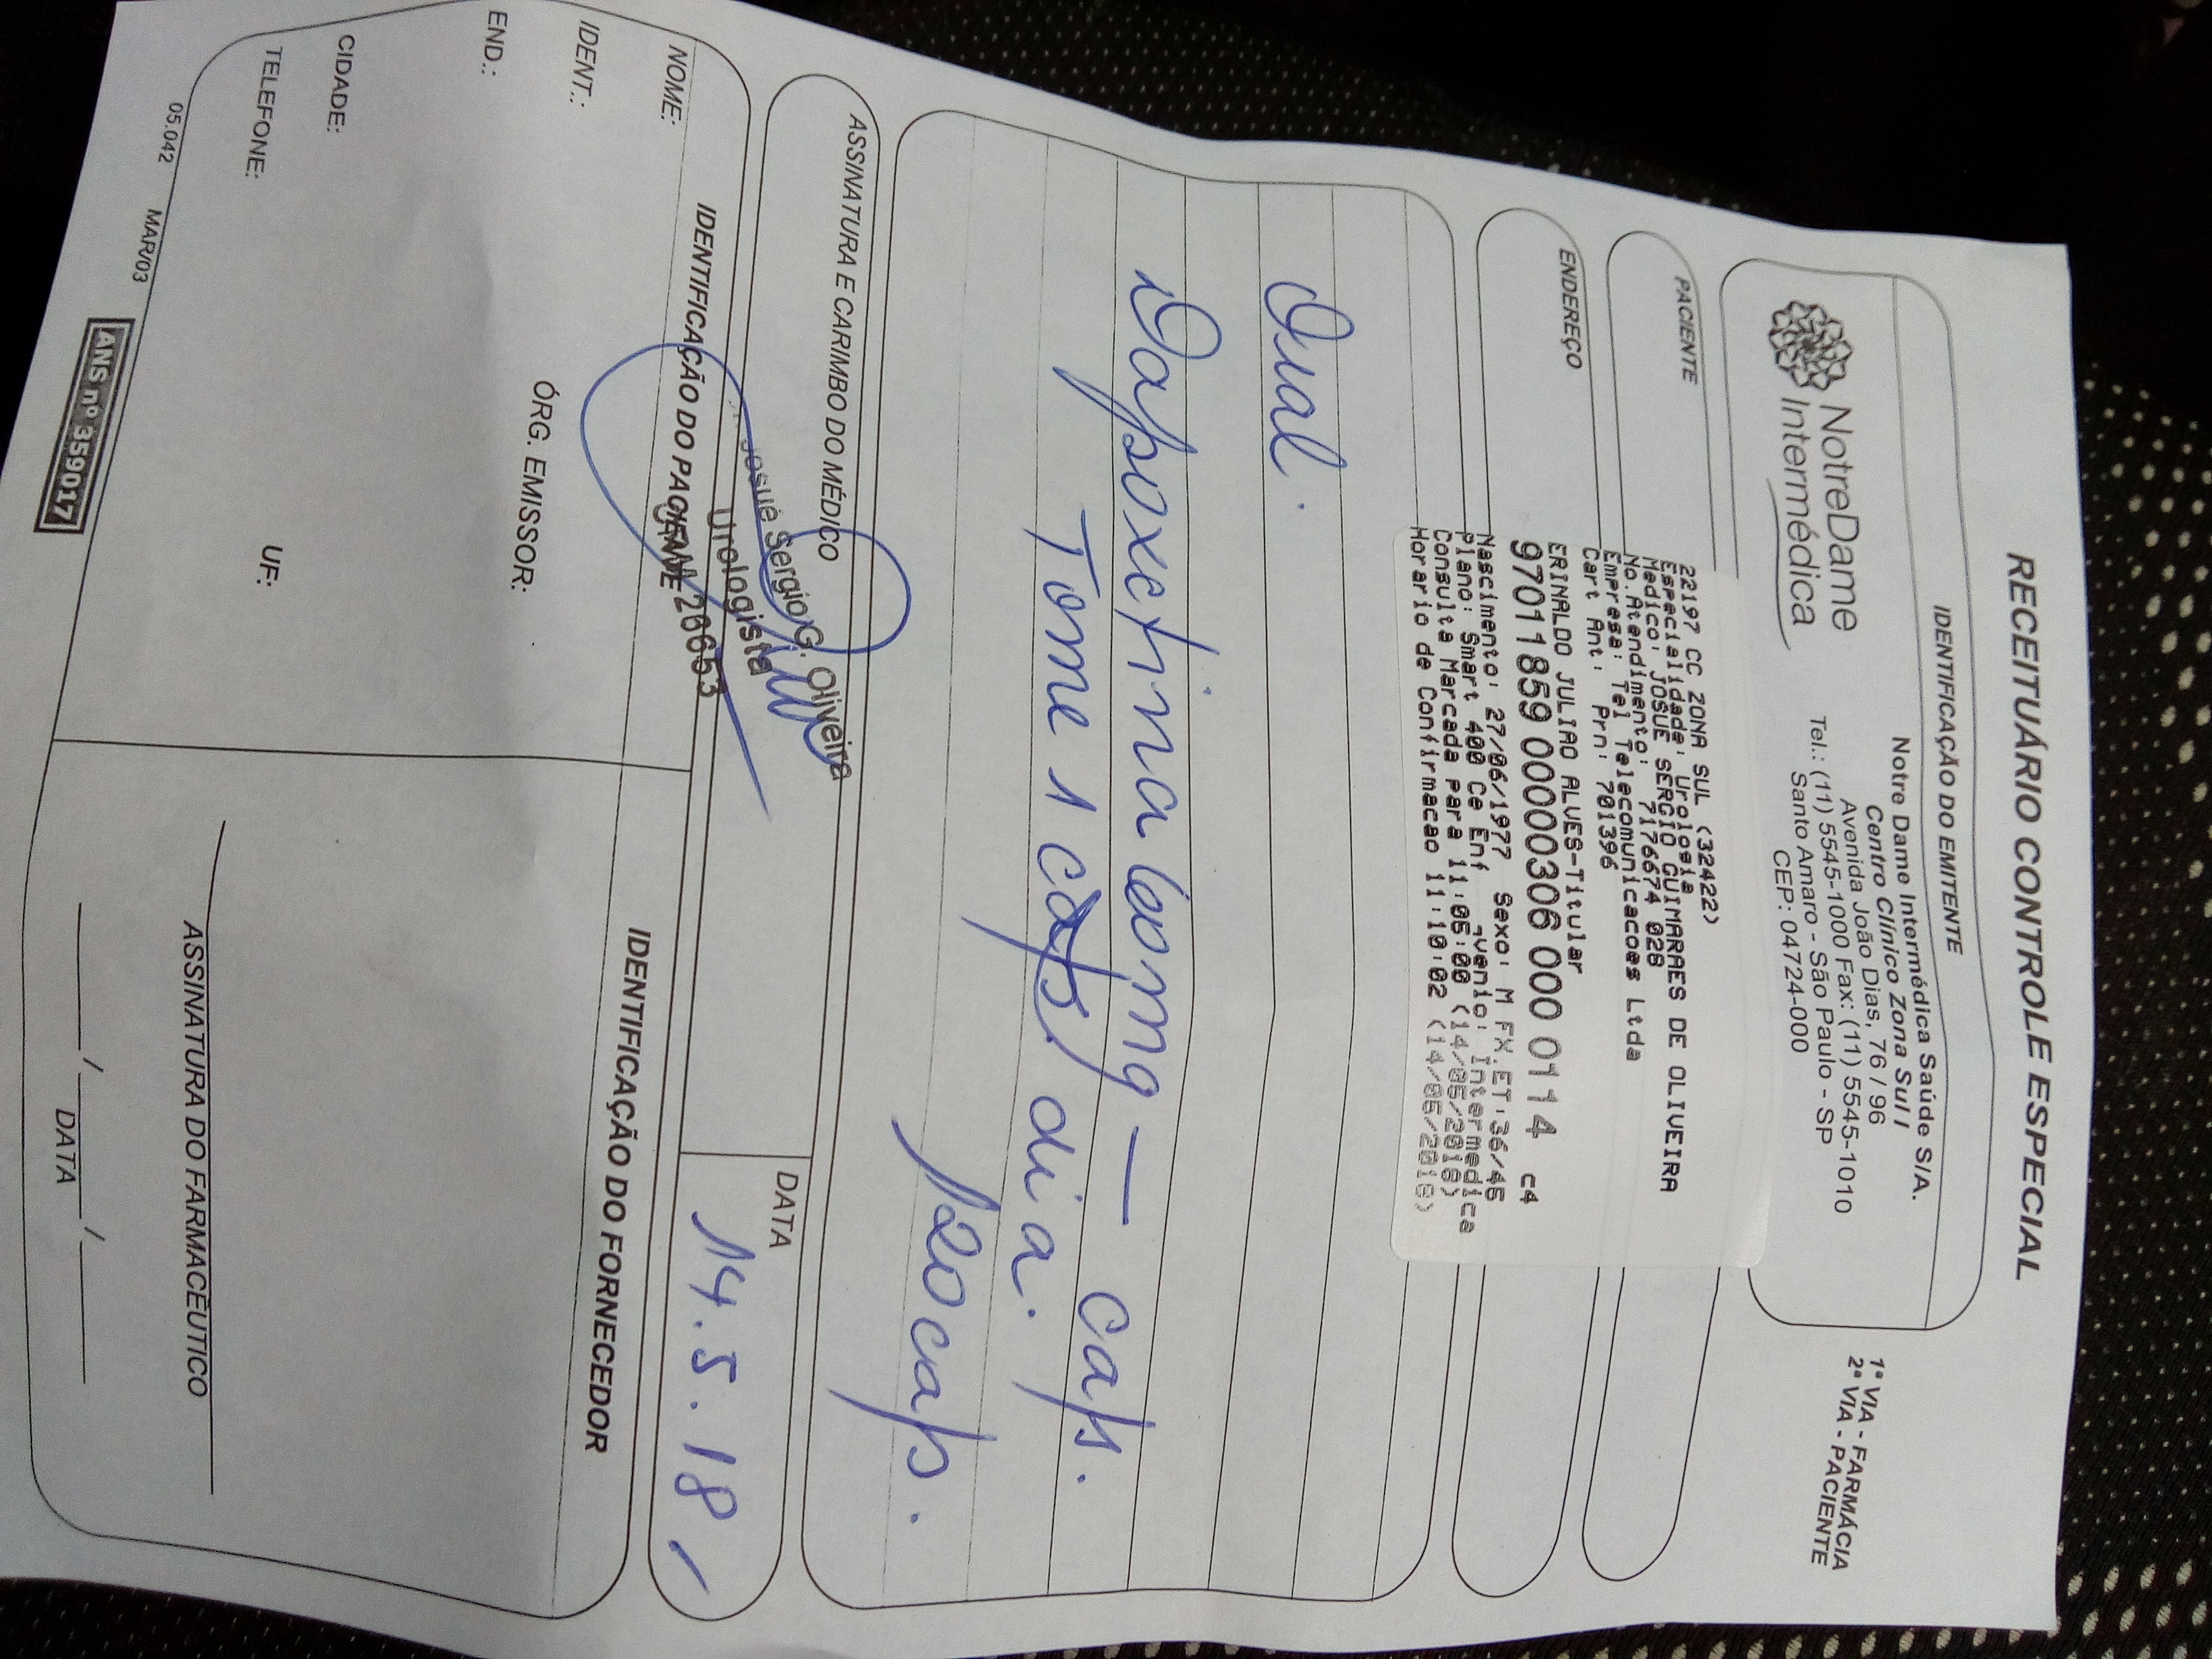 RECEITUÁRIO CONTROLE ESPECIAL
IDENTIFICAÇÃO DO EMITENTE
NotreDame
Intermédica
Notre Dame Intermédica Saúde S/A.
Centro Clínico Zona Sul I
Avenida João Dias, 76 / 96
Tel.: (11) 5545-1000 Fax: (11) 5545-1010
Santo Amaro - São Paulo - SP
CEP: 04724-000
1ª VIA - FARMÁCIA
2ª VIA - PACIENTE
PACIENTE
22197 CC ZONA SUL (32422)
Especialidade: Urologia
Medico: JOSUE SERGIO GUIMARAES DE OLIVEIRA
No.Atendimento: 7176674 028
Empresa: Tel Telecomunicacoes Ltda
Cart Ant: Prn: 701396
ENDEREÇO
ERINALDO JULIAO ALVES-Titular
97011859 00000306 000 0114 c4
Nascimento: 27/06/1977 Sexo: M FX.ET:36/45
Plano: Smart 400 Ce Enf venio: Intermedica
Consulta Marcada para 11:05:00 (14/05/2018)
Horario de Confirmacao 11:10:02 (14/05/2018)
Oral.
Dapoxetina 60mg — caps.
Tome 1 cap. dia.
120 cap.
ASSINATURA E CARIMBO DO MÉDICO
Josué Sergio G. Oliveira
Urologista
CRM 26653
DATA
14.5.18
IDENTIFICAÇÃO DO PACIENTE
NOME:
IDENT.:
ÓRG. EMISSOR:
END.:
CIDADE:
TELEFONE:
UF:
IDENTIFICAÇÃO DO FORNECEDOR
ASSINATURA DO FARMACÊUTICO
____/____/____
DATA
05.042 MAR/03
ANS nº 359017